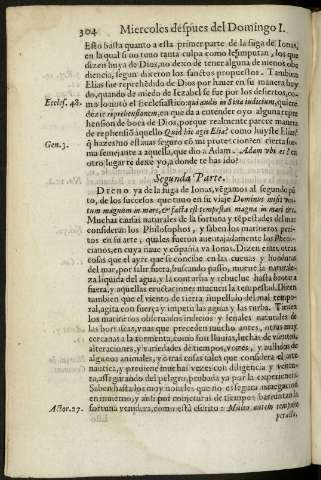 304 Miercoles despues del Domingo I.
Esto basta quanto a esta primer parte de la fuga de Ionas,
en la qual si no tuuo tanta culpa como le imputan, los que
dizen huya de Dios, no dexo de tener alguna de menos obe
diencia, segun dixeron los sanctos propuestos. Tambien
Elias fue reprehēdido de Dios por hauer en su manera huy
do, quando de miedo de Iezabel se fue por los desiertos, co-
Eccles. 48. mo lo notò el Ecclesiastico: qui audis in Sina iudicium, quiere
dezir reprehensionem, en que da a entender oyo alguna repre
hension de boca de Dios, porque realmente parece manera
de reprehensiō aquello Quid hic agis Elia? como huyste Elias?
Gen. 3. q̄ hazes no estauas seguro cō mi protectionè es cierta for
ma semejante a aquello, que dio a Adam. Adam vbi es? en
otro lugar te dexè yo, a donde te has ido?
Segunda Parte.
Dicho ya de la fuga de Ionas, vēgamos al segundo pū
to, de los successos que tuuo en su viaje Dominus misit ven
tum magnum in mare, & facta est tempestas magna in mari &c.
Muchas causas naturales de la fortuna y tēpestades del mar
consideran los Philosophos, y saben los marineros peri-
tos en su arte, quales fueron auentajadamente los Pheni-
cianos, en cuya naue y cōpañia yva Ionas. Dizen entre otras
cosas que el ayre que se concibe en las cueuas y honduras
del mar, por salir fuera, buscando passo, mueue la naturale-
za liquida del agua, y la conturba y rebuelue hasta brotar a
fuera, y aquellas eneltaciones mueuen la tempestad. Dizen
tambien que el viento de tierra impellido del mal tempo-
ral, agita con fuerça y impetu las aguas y las turba. Tienen
los marineros obseruados indicios y señales naturales de
las borrascas, vnas que preceden mucho antes, otras muy
cercanas a la tormenta, como son lluuias, luchas de vientos,
alteraciones, y variedades de tiempos, vozes, y aullidos de
algunos animales, y otras cosas tales que considera el arte
nautica, y predicene muchas vezes con diligencia y venten-
ta, assegurando del peligro, prouada ya por la experiencia.
Saben hasta los muy noueles que no es segura nauegacion
en inuierno, y assi por conjeturas de tiempos barruntan la
Actor. 27. fortuna venidera, como està escrito: Multo autem tempore
peracto,